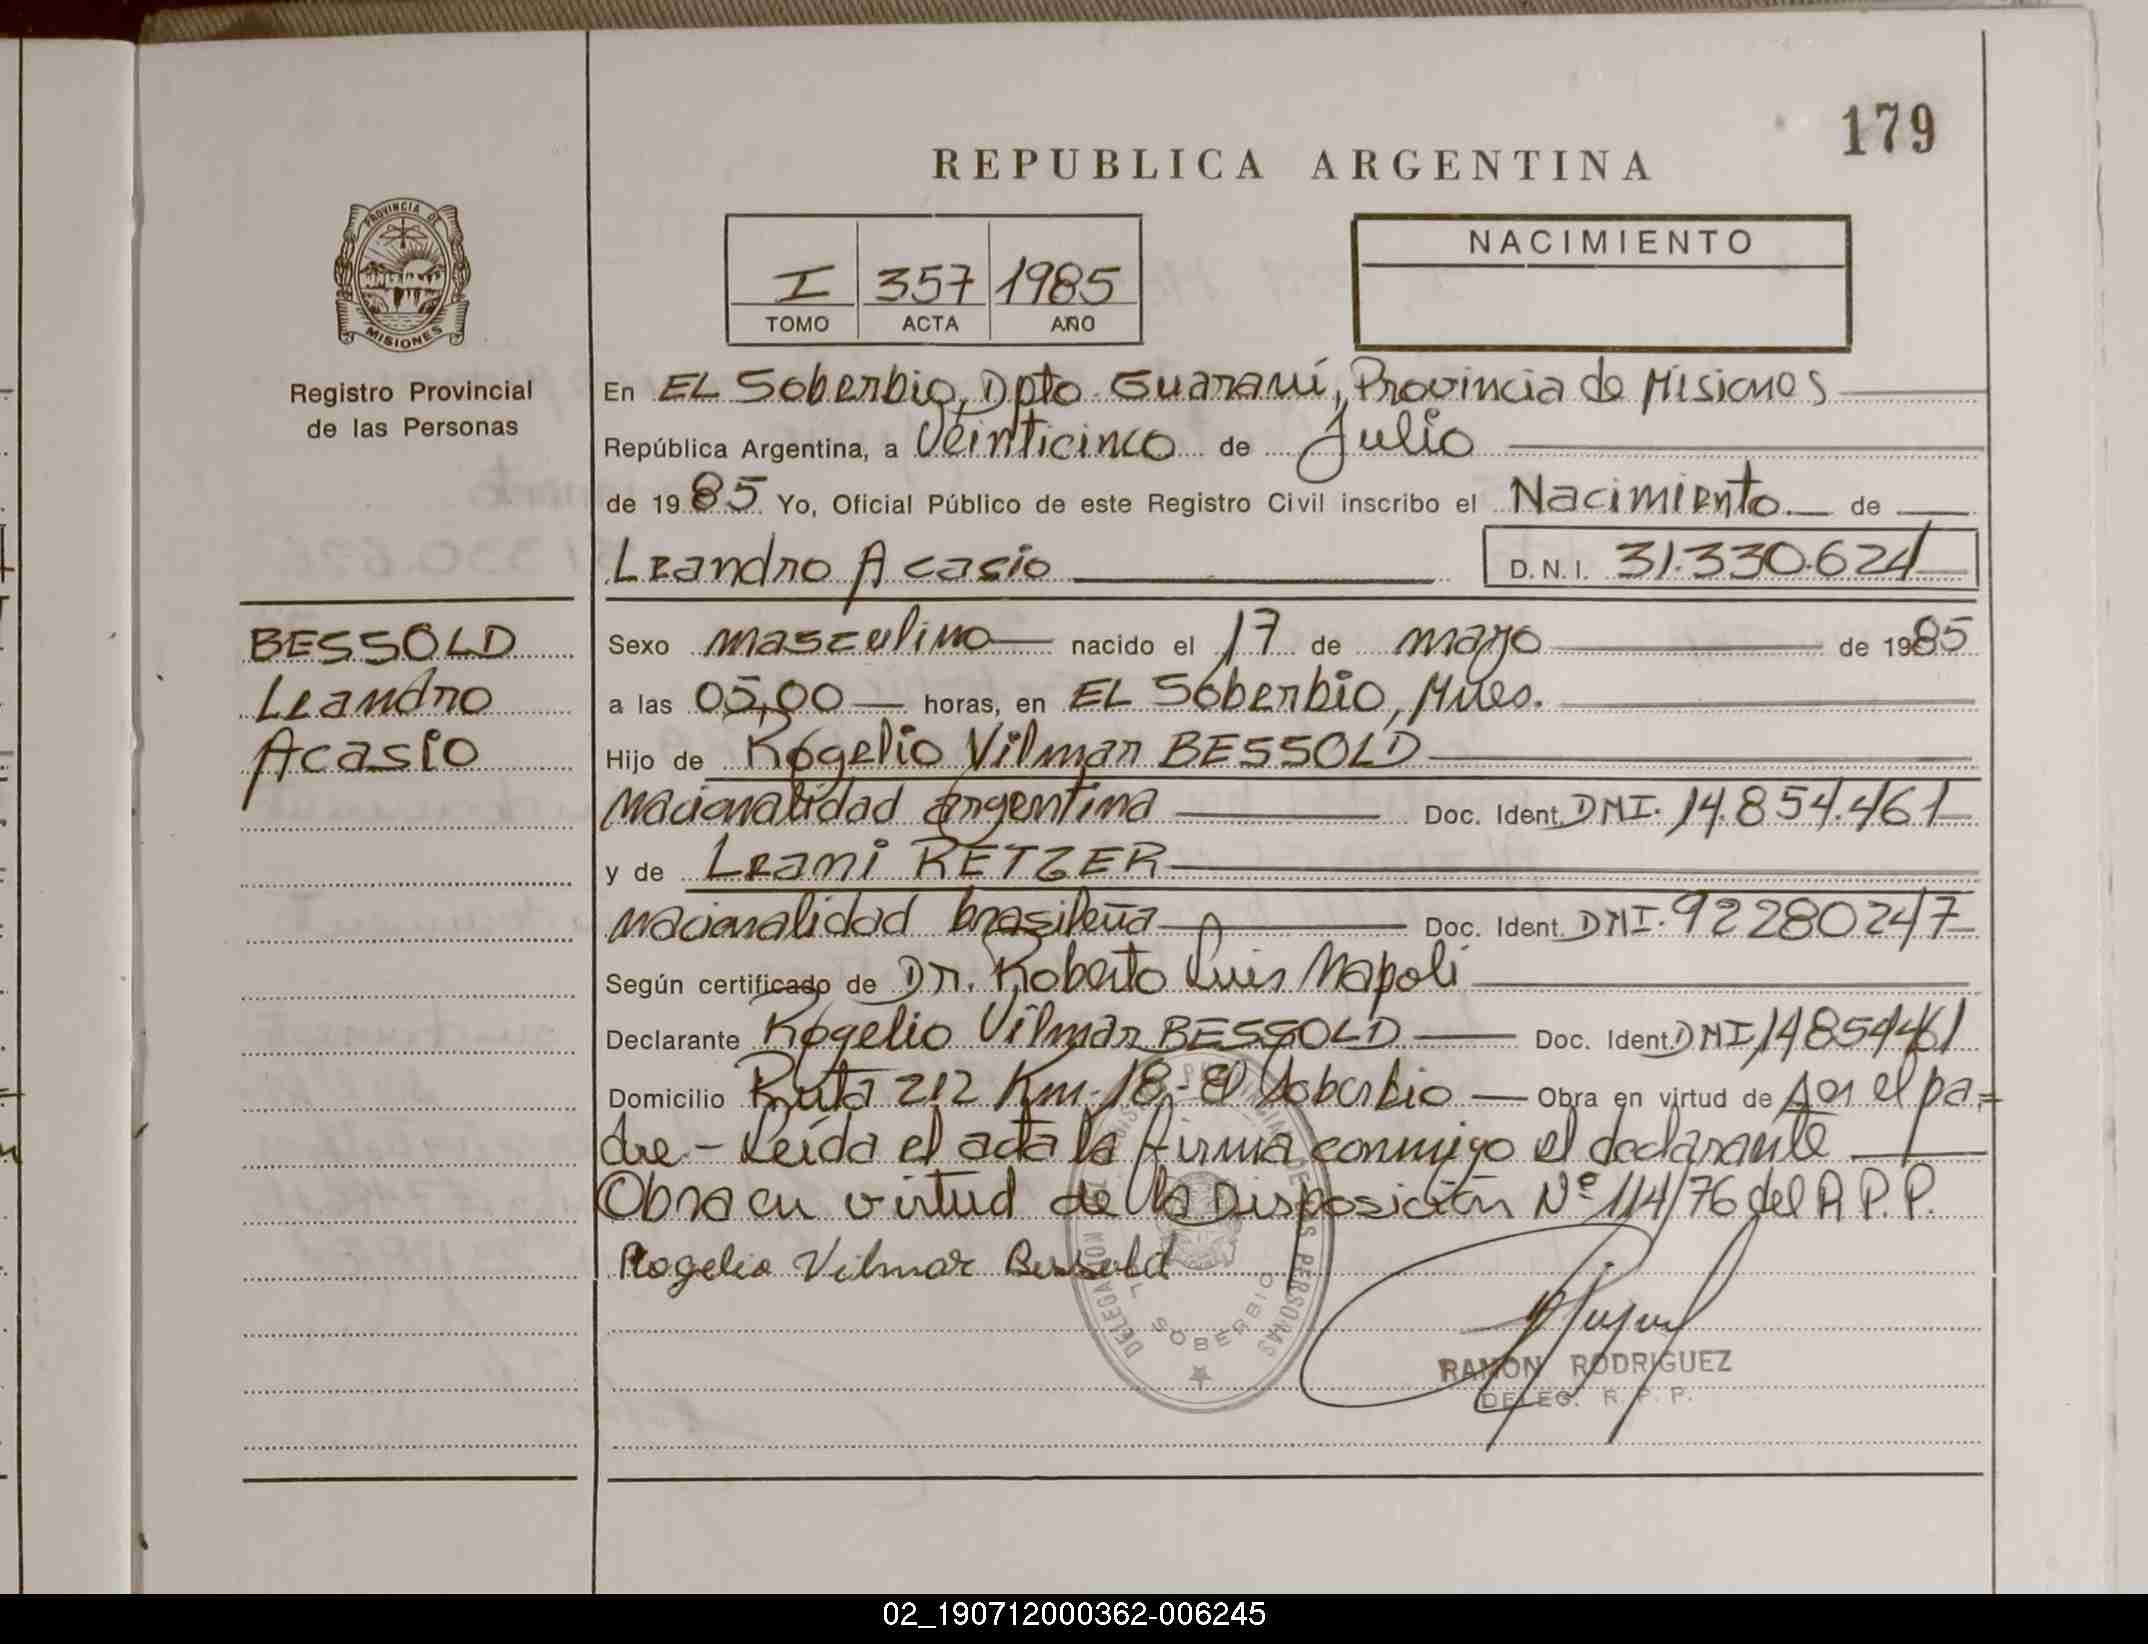 179
REPUBLICA ARGENTINA
PROVINCIA DE
MISIONES
Registro Provincial
de las Personas
I 357 1985
TOMO ACTA AÑO
NACIMIENTO
En EL Soberbio, Dpto. Guaraní, Provincia de Misiones
República Argentina, a Veinticinco de Julio
de 1985 Yo, Oficial Público de este Registro Civil inscribo el Nacimiento de
Leandro Acasio D.N.I. 31.330.624
BESSOLD
Leandro
Acasio
Sexo masculino nacido el 17 de mayo de 1985
a las 05,00 horas, en EL Soberbio, Mnes.
Hijo de Rogelio Vilmar BESSOLD
nacionalidad argentina Doc. Ident. DNI. 14.854.461
y de Leani RETZER
nacionalidad brasileña Doc. Ident. DNI. 92280247
Según certificado de Dr. Roberto Luis Napoli
Declarante Rogelio Vilmar BESSOLD Doc. Ident. DNI 14854461
Domicilio Ruta 212 Km. 18 - El Soberbio Obra en virtud de ser el pa-
dre - Leída el acta la firma conmigo el declarante
Obra en virtud de la Disposición Nº 114/76 del R.P.P.
Rogelio Vilmar Bessold
DELEGACION EL SOBERBIO
DE LAS PERSONAS
RAMON RODRIGUEZ
DELEG. R. P. P.
02_190712000362-006245